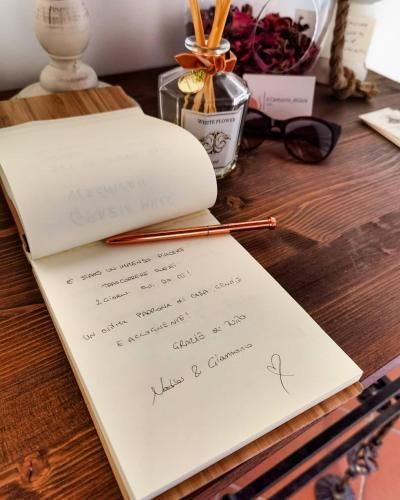 WHITE FLOWER
È STATO UN IMMENSO PIACERE
TRASCORRERE QUESTI
2 GIORNI QUI DA TE!
UN'OTTIMA PADRONA DI CASA, GENTILE
E ACCOGLIENTE!
GRAZIE DI TUTTO
& Gianmarco